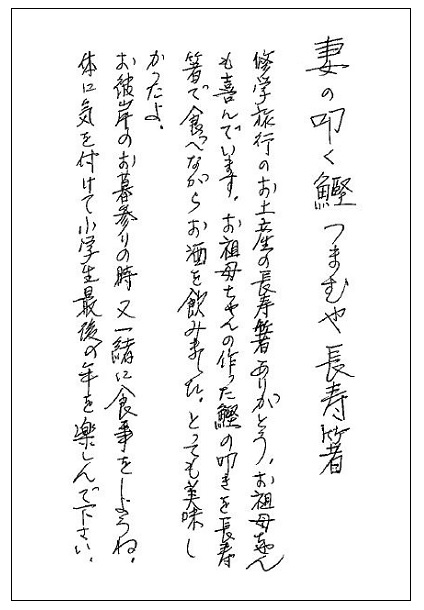 妻の叩く鰹つまむや長寿箸
修学旅行のお土産の長寿箸ありがとう。お祖母ちゃん
も喜んでいます。お祖母ちゃんの作った鰹の叩きを長寿
箸で食べながらお酒を飲みました。とっても美味し
かったよ。
お彼岸のお墓参りの時又一緒に食事をしようね。
体に気を付けて小学生最後の年を楽しんで下さい。